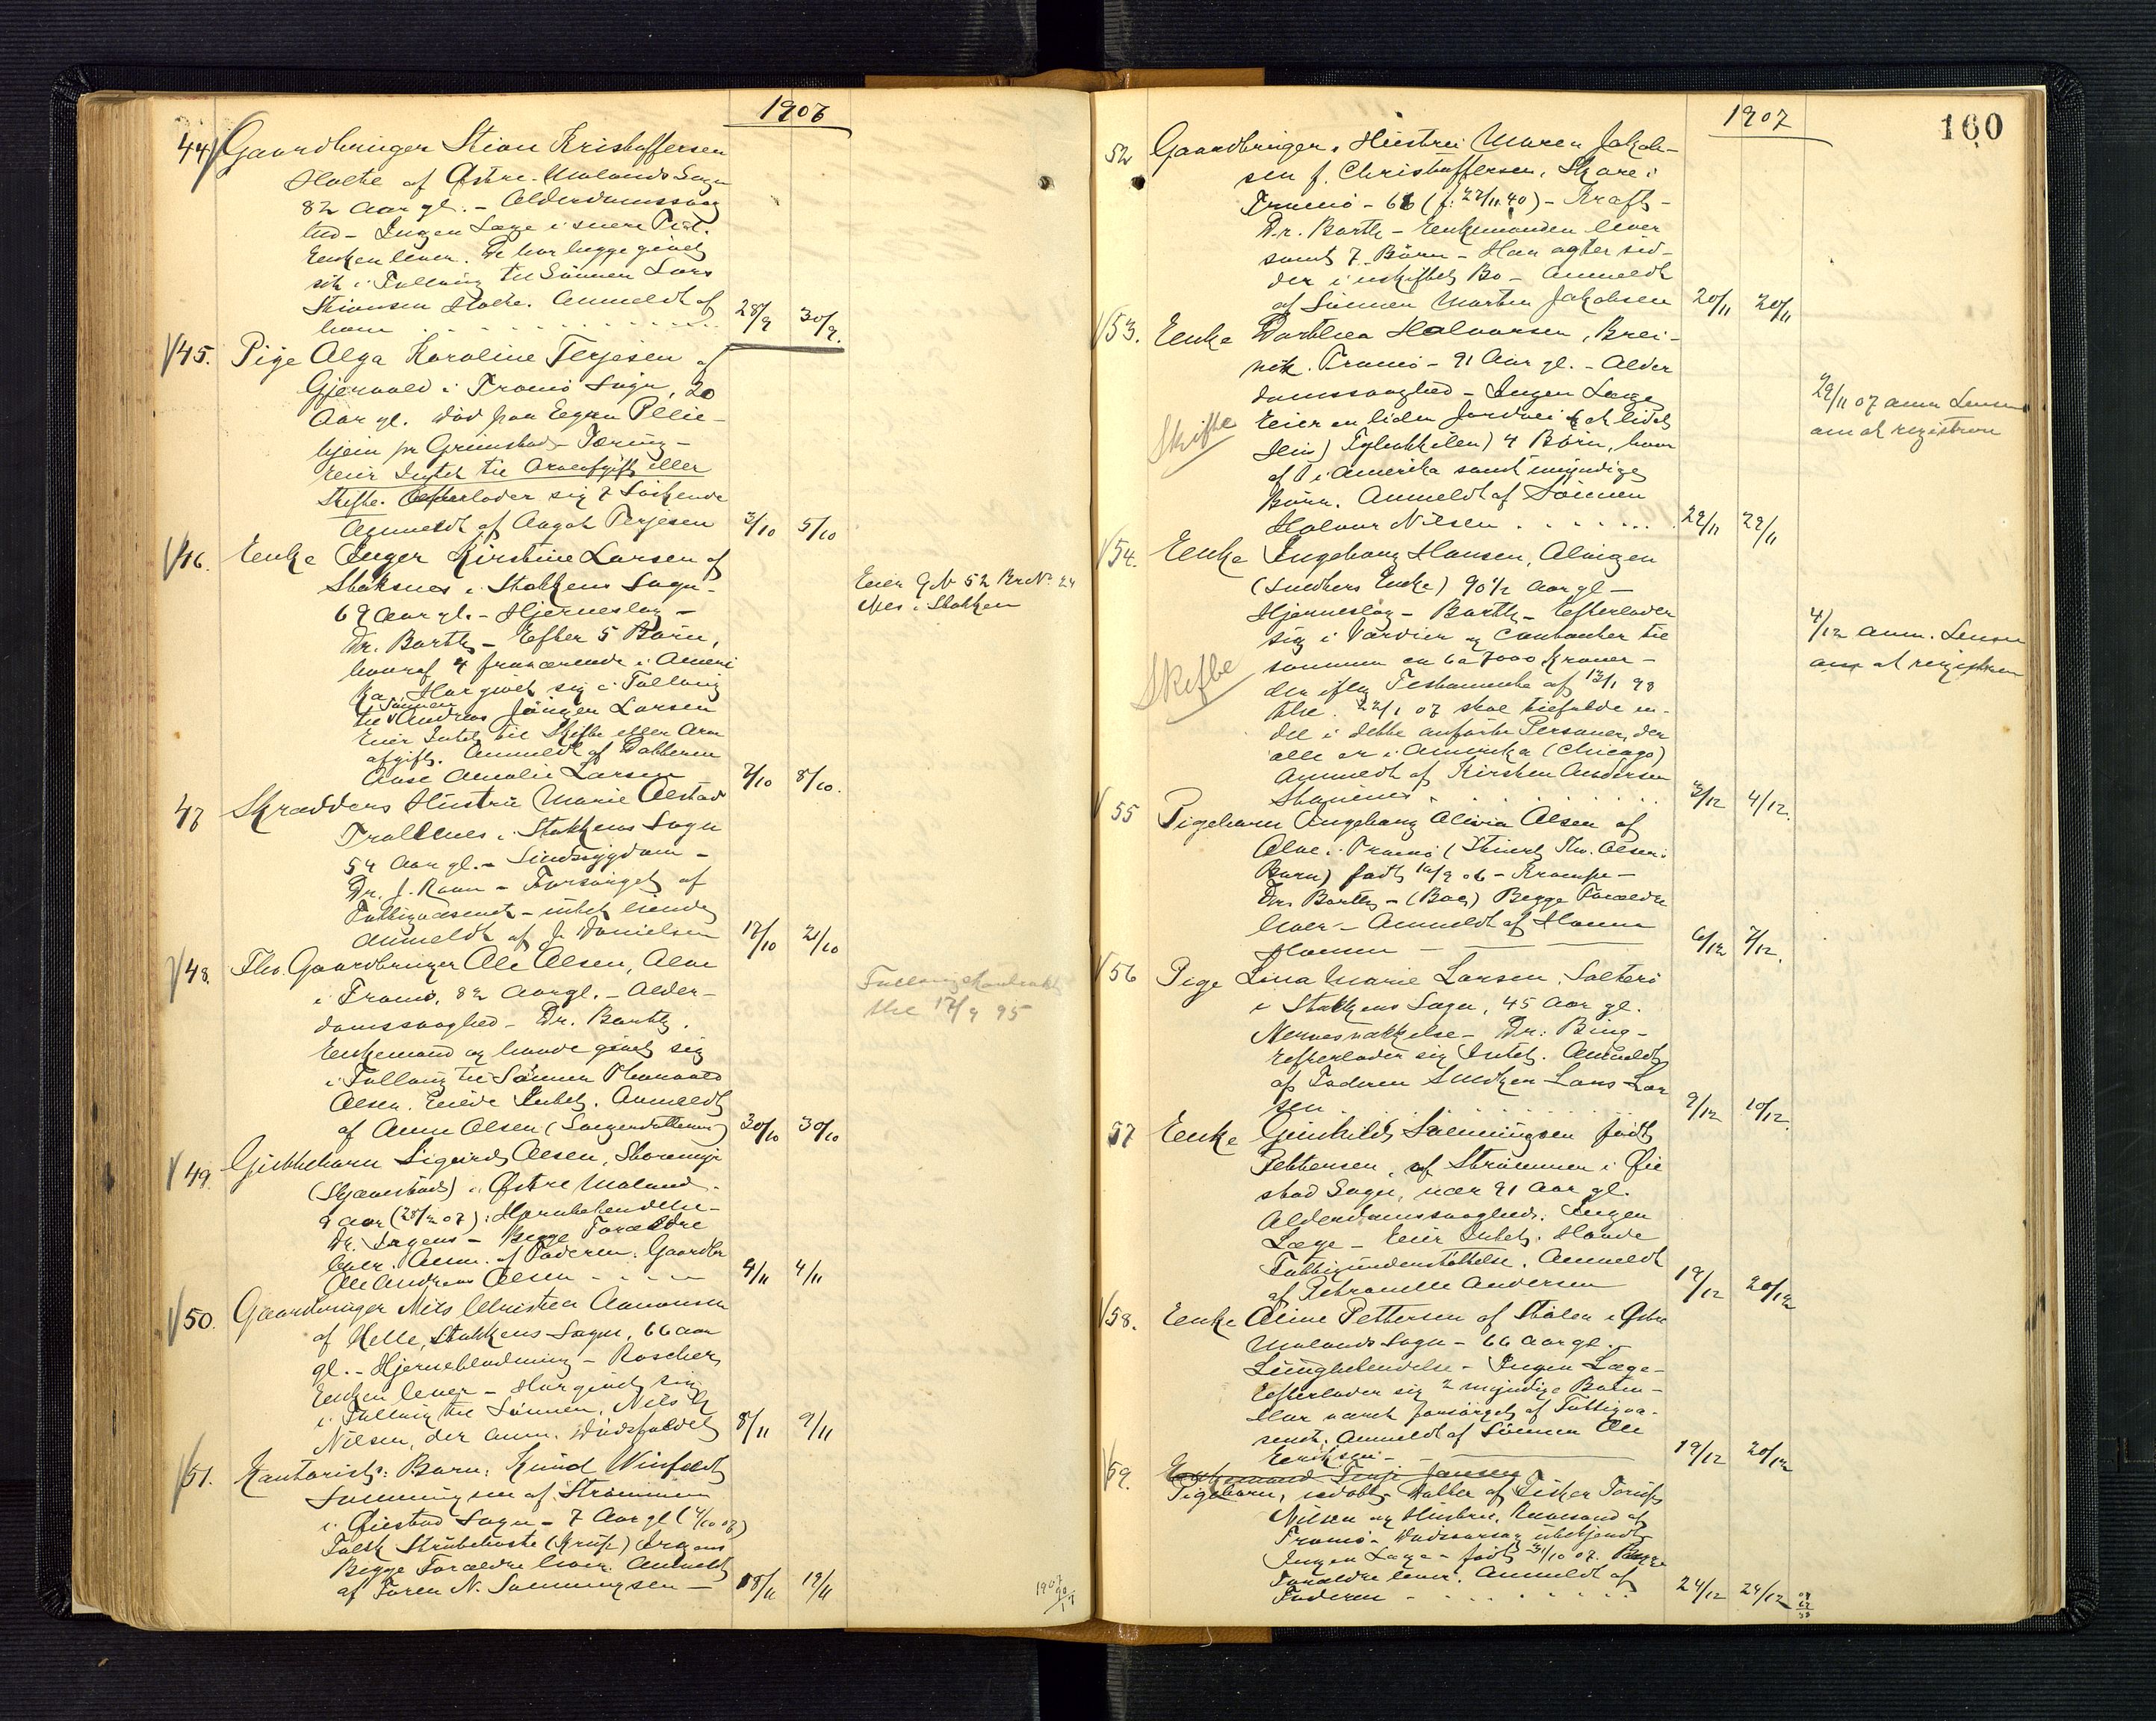 1906
44 Gaardbruger Stian Kristoffersen
Holte af Østre Molands Sogn
82 Aar gl. - Alderdomssvag
hed - Ingen Læge i senere Tid.
Enken lever. De har begge givet
sig i Follaug til Sønnen Lars
Stiansen Holte. Anmeldt af
ham 28/9 30/9.
45. Pige Olga Karoline Terjesen af
Gjervold i Tromø Sogn, 20
Aar gl. død paa Egen Pleie-
hjem pr Grimstad - Tæring -
Eier Intet til Arveafgift eller
Skifte. Efterlader sig 7 Søskende
Anmeldt af Aagot Terjesen 3/10 5/10
46. Enke Inger Kirstine Larsen af
Staksnes i Stokkens Sogn -
69 Aar gl. - Hjerneslag -
Dr. Barth - Efter 5 Børn,
hvoraf 4 fraværende i Ameri
ka. Har givet sig i Follaug
til Sønnen Andreas Jørgen Larsen
Eier Intet til Skifte eller Arve
afgift. Anmeldt af Datteren
Aase Amalie Larsen 7/10 8/10.
Eier G.N. 52 Br.No. 24
Nes i Stokken
47 Skrædders Hustru Marie Olstad
Trollnes i Stokkens Sogn
54 Aar gl. - Sindssygdom -
Dr. J. Raun - Forsørget af
Fattigvæsenet - intet eiende
Anmeldt af J. Danielsen 17/10 21/10
48. Fhv. Gaardbruger Ole Olsen, Alve
i Tromø, 82 Aar gl. - Alder-
domssvaghed - Dr. Barth.
Enkemand og havde givet sig
i Follaug til Sønnen Thorvald
Olsen. Eiede Intet. Anmeldt
af Anne Olsen (Svigerdatteren) 30/10 30/10
Follaugskontrakt
thl 17/9 95
49. Guttebarn Sigurd Olsen, Storemyr
(Skjævestad) i Østre Moland.
9 Aar (28/2 07): Hjernebetændelse -
Dr. Irgens - Begge Forældre
lever. Anm. af Faderen, Gaardbr
Ole Andreas Olsen 4/11 4/11
50. Gaardbruger Nils Christian Aanonsen
af Helle, Stokkens Sogn, 66 aar
gl. - Hjerneblødning - Roscher
Enken lever - Har givet sig
i Follaug til Sønnen, Nils
Nilsen, der anm. Dødsfaldet 8/11 9/11
51. Kontorists Barn: Knud Winfeldt
Sønningsen af Strømmen
i Øiestad Sogn - 7 Aar gl (4/10 07)
Falsk Strubehoste (Krup) Irgens
Begge Forældre lever. Anmeldt
af Faren N. Sønningsen - 18/11 19/11
1907
160
52 Gaardbrugers Hustru Maren Jakob-
sen f. Christoffersen, Skare i
Tromø - 66 (f. 27/11 40) - Kræft -
Dr. Barth - Enkemanden lever
samt 7 Børn - Han agter sid-
der i uskiftet Bo - Anmeldt
af Sønnen Martin Jakobsen 20/11 20/11
53. Enke Dorthea Halvorsen, Brei-
vik Tromø - 91 Aar gl. - Alder
domssvaghed - Ingen Læge
Eier en liden Jordvei og et lidet
Hus) 4 Børn, hvor
af 1 i Amerika samt myndige
Børn. Anmeldt af Sønnen
Halvor Nilsen 22/11 22/11
Skifte
22/11 07 anm Lensm
om at registrere
54. Enke Ingeborg Hansen, Alvigen
(Snedkers Enke) 90½ Aar gl -
Hjerneslag - Barth - Efterlader
sig i Værdier og Contanter til
sammen ca 6 a 7000 Kroner -
der iflg Testamente af 13/1 98
thl. 22/1 07 skal tilfalde en-
del i dette anførte Personer, der
alle er i Amerika (Chicago)
Anmeldt af Kirsten Andersen
3/12 4/12.
Skifte
4/12 anm. Lensm
om at registrere
55 Pigebarn Ingeborg Olivia Olsen af
Alve i Tromø (Stuert Th. Olsens
Barn) født 10/9 06 - Krampe -
Dr Barth - (Boe) Begge Forældre
lever - Anmeldt af Hanna
Hansen 6/12 7/12.
56 Pige Lina Marie Larsen, Salterø
i Stokkens Sogn, 45 Aar gl.
Nervesvækkelse - Dr. Bing -
Efterlader sig Intet. Anmeldt
af Faderen Snedker Lars Lar
sen 9/12 10/12.
57 Enke Gunhild Sønningsen født
Pettersen, af Strømmen i Øie
stad Sogn, nær 91 Aar gl.
Alderdomssvaghed. Ingen
Læge - Eier Intet. Havde
Fattigunderstøttelse. Anmeldt
af Petronelle Andersen 19/12 20/12
58. Enke Oline Pettersen af Stølen i Østre
Molands Sogn - 66 aar gl. -
Lungebetændelse - Ingen Læge -
Efterlader sig 2 myndige Børn -
Har været forsørget af Fattigvæ-
senet. Anmeldt af Sønnen Ole
Eriksen 19/12 20/12
59. Enkemand Terje Jansen
Pigebarn, udøbt, Datter af Fisker Torjus
Nilsen og Hustru, Revesand af
Tromø. Dødsaarsag ubekjendt
Ingen Læge - født 31/10 07. Begge
Forældre lever. Anmeldt af
Faderen 24/12 24/12